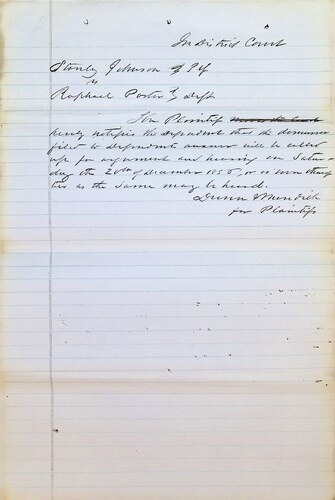 In District Court
Stanly Johnson Plf
vs
Raphael Porter deft
The Plaintiff
hereby notifies the dependent that the demurrer
filed to dependents answer will be called
up for argument and hearing on Satur-
day the 20th of December 1858, or as soon there
after as the same may be heard.
Dunn & Mendick
for Plaintiffs